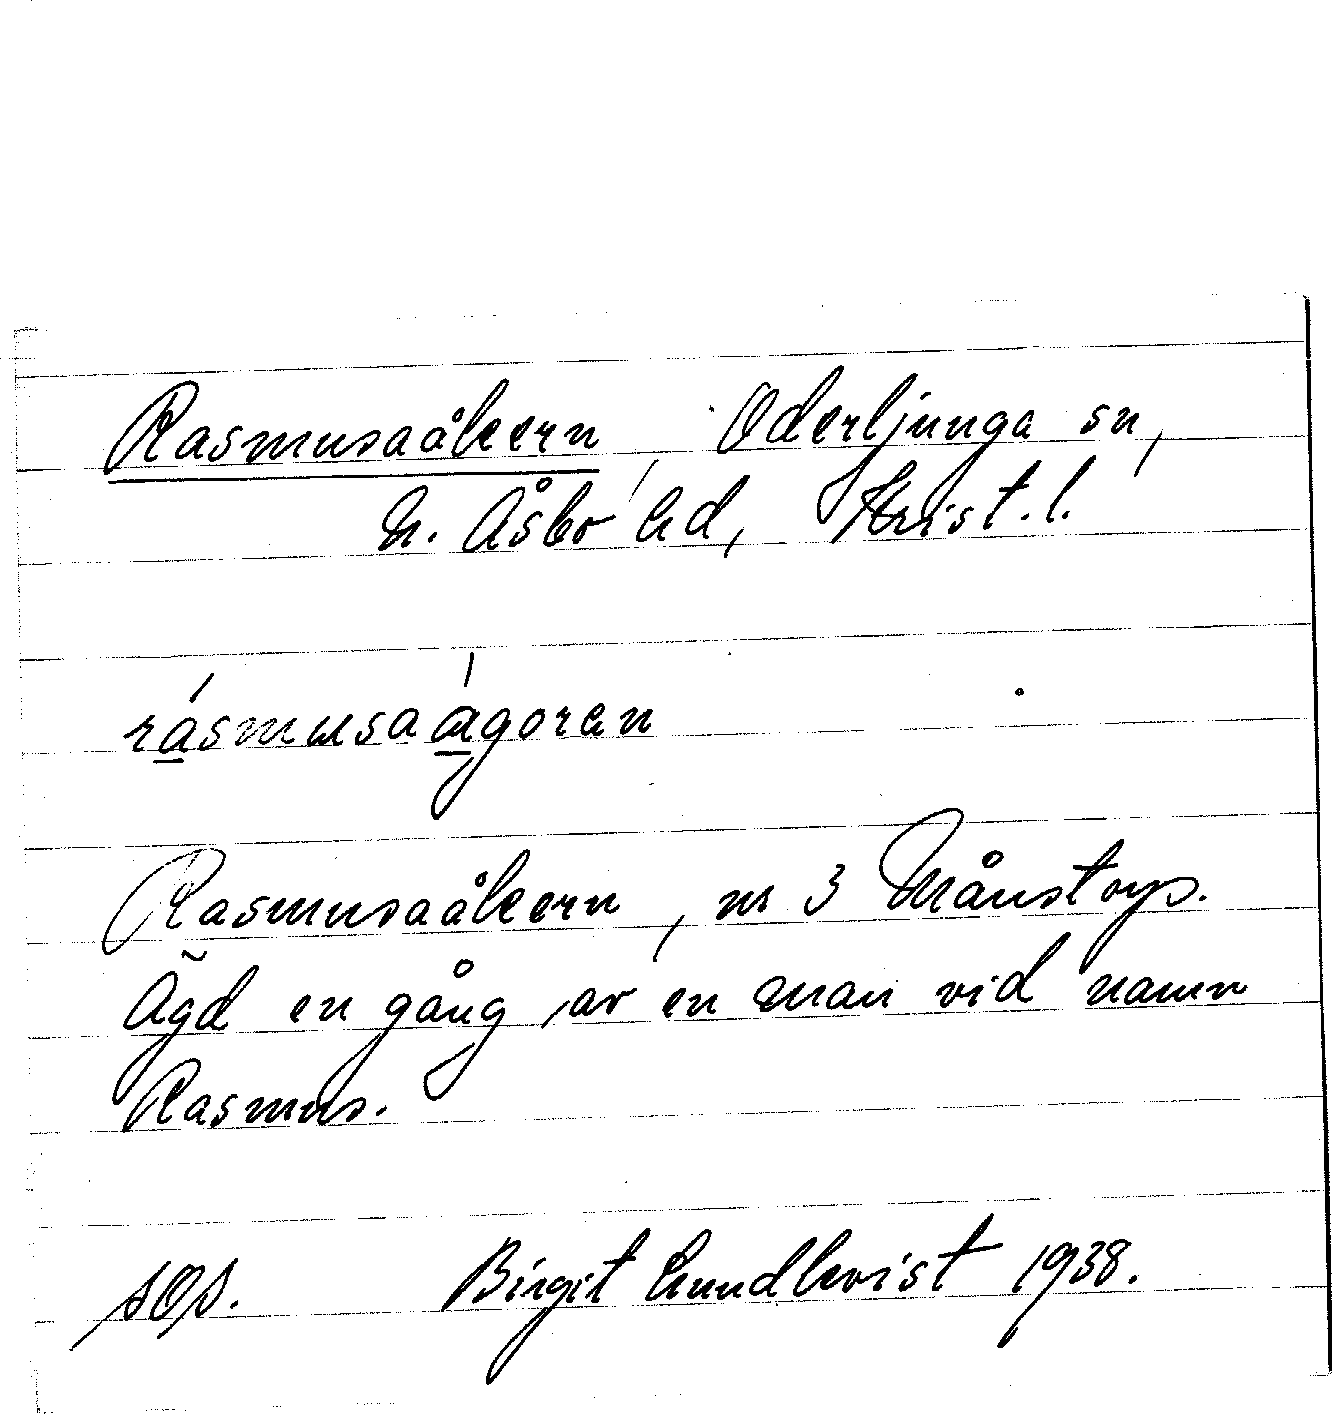 Rasmusaåkern, Oderljunga sn,
N. Åsbo hd, Krist. l.
rásmusaágoren
Rasmusaåkern, nr 3 Månstorp.
Ägd en gång av en man vid namn
Rasmus.
Birgit Lundkvist 1938.